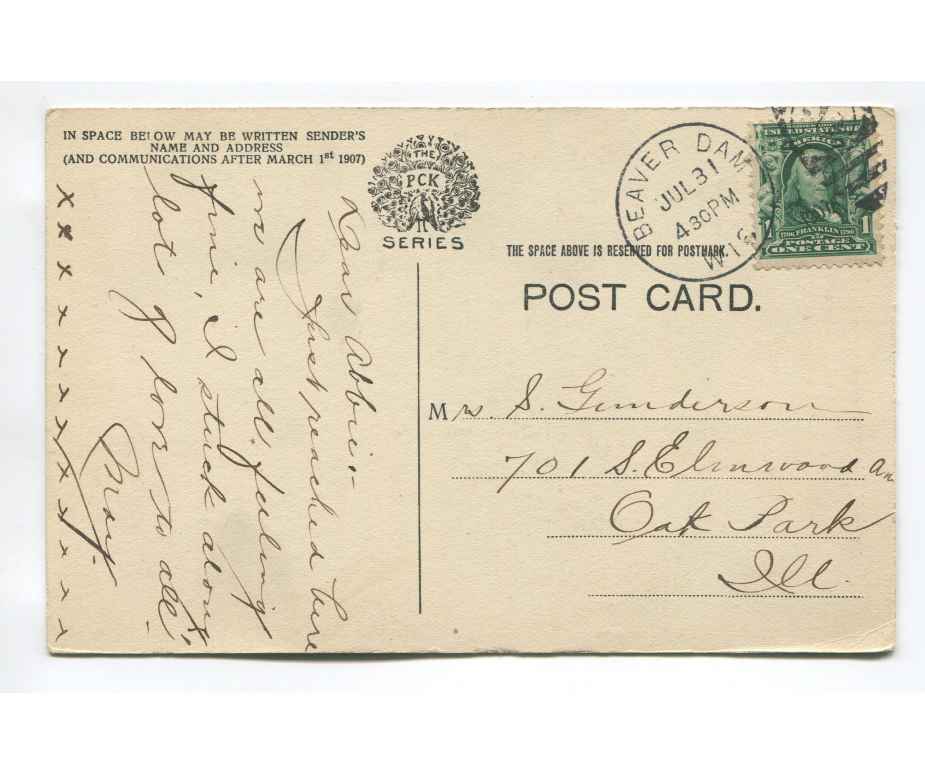 IN SPACE BELOW MAY BE WRITTEN SENDER'S
NAME AND ADDRESS
(AND COMMUNICATIONS AFTER MARCH 1st 1907)
THE
PCK
SERIES
BEAVER DAM
JUL 31
4 30 PM
WIS
UNITED STATES OF
AMERICA
1706 FRANKLIN 1790
1 POSTAGE 1
ONE CENT
THE SPACE ABOVE IS RESERVED FOR POSTMARK.
POST CARD.
Dear Abbie:-
Just reached here
we are all feeling
fine, I stuck
lots of love to all
x x x x x x x x x x x
Mrs. S. Gunderson
701 S. Elmwood Av
Oak Park
Ill.